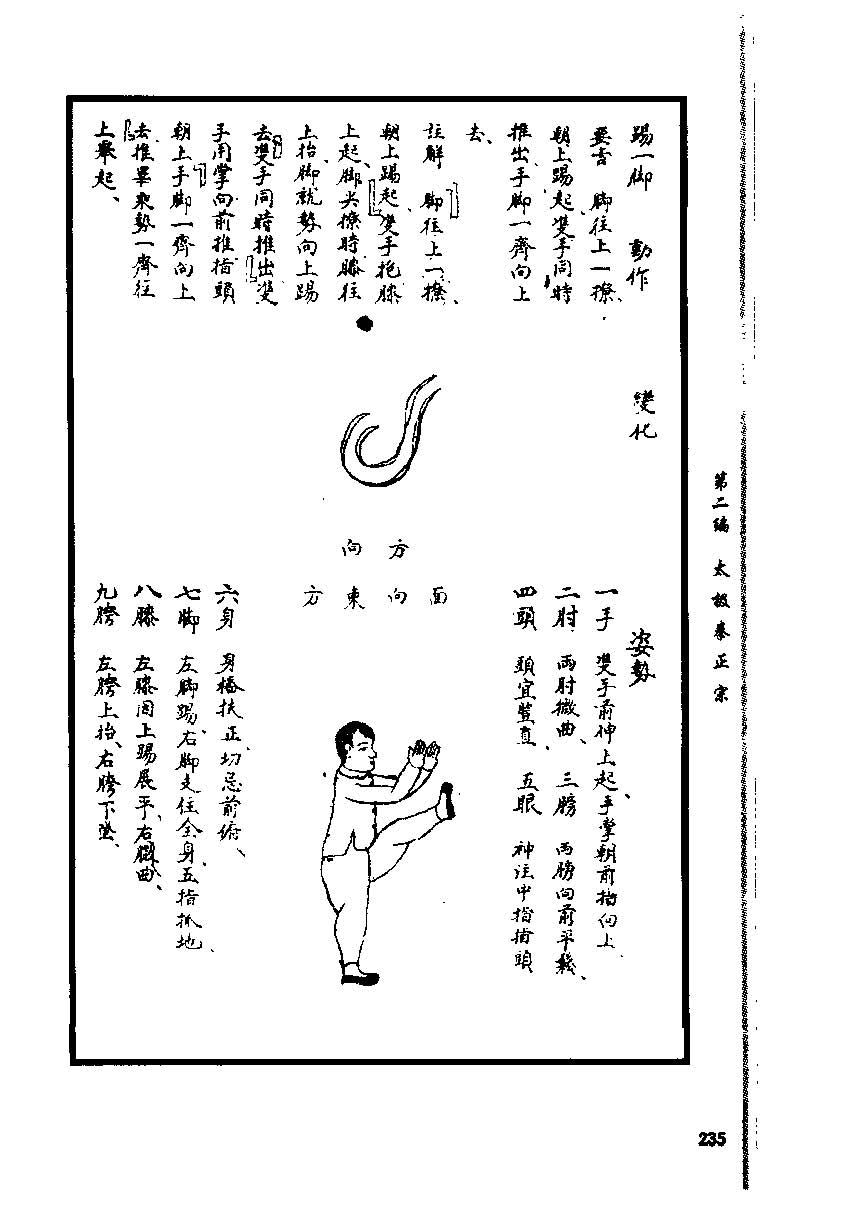 踢一脚　動作
要言　脚往上一撩、
朝上踢起、雙手同時
推出、手脚一齊向上
去、
註解　脚往上一撩、
朝上踢起、雙手抱膝
上起、脚尖撩時、膝往
上抬、脚就勢向上踢
去、雙手同時推出、雙
手用掌向前推、指頭
朝上、手脚一齊向上
去、推畢乘勢一齊往
上舉起、
變化
方向
面向東方
姿勢
一手　雙手前伸上起、手掌朝前、指向上、
二肘　兩肘微曲、　三膀　兩膀向前平
四頭　頭宜豎直、　五眼　神注中指指頭
六身　身樁扶正、切忌前俯、
七脚　左脚踢、右脚支住全身、五指抓地、
八膝　左膝向上踢展平、右微曲、
九胯　左胯上抬、右胯下墜、
第二编　太极拳正宗
235